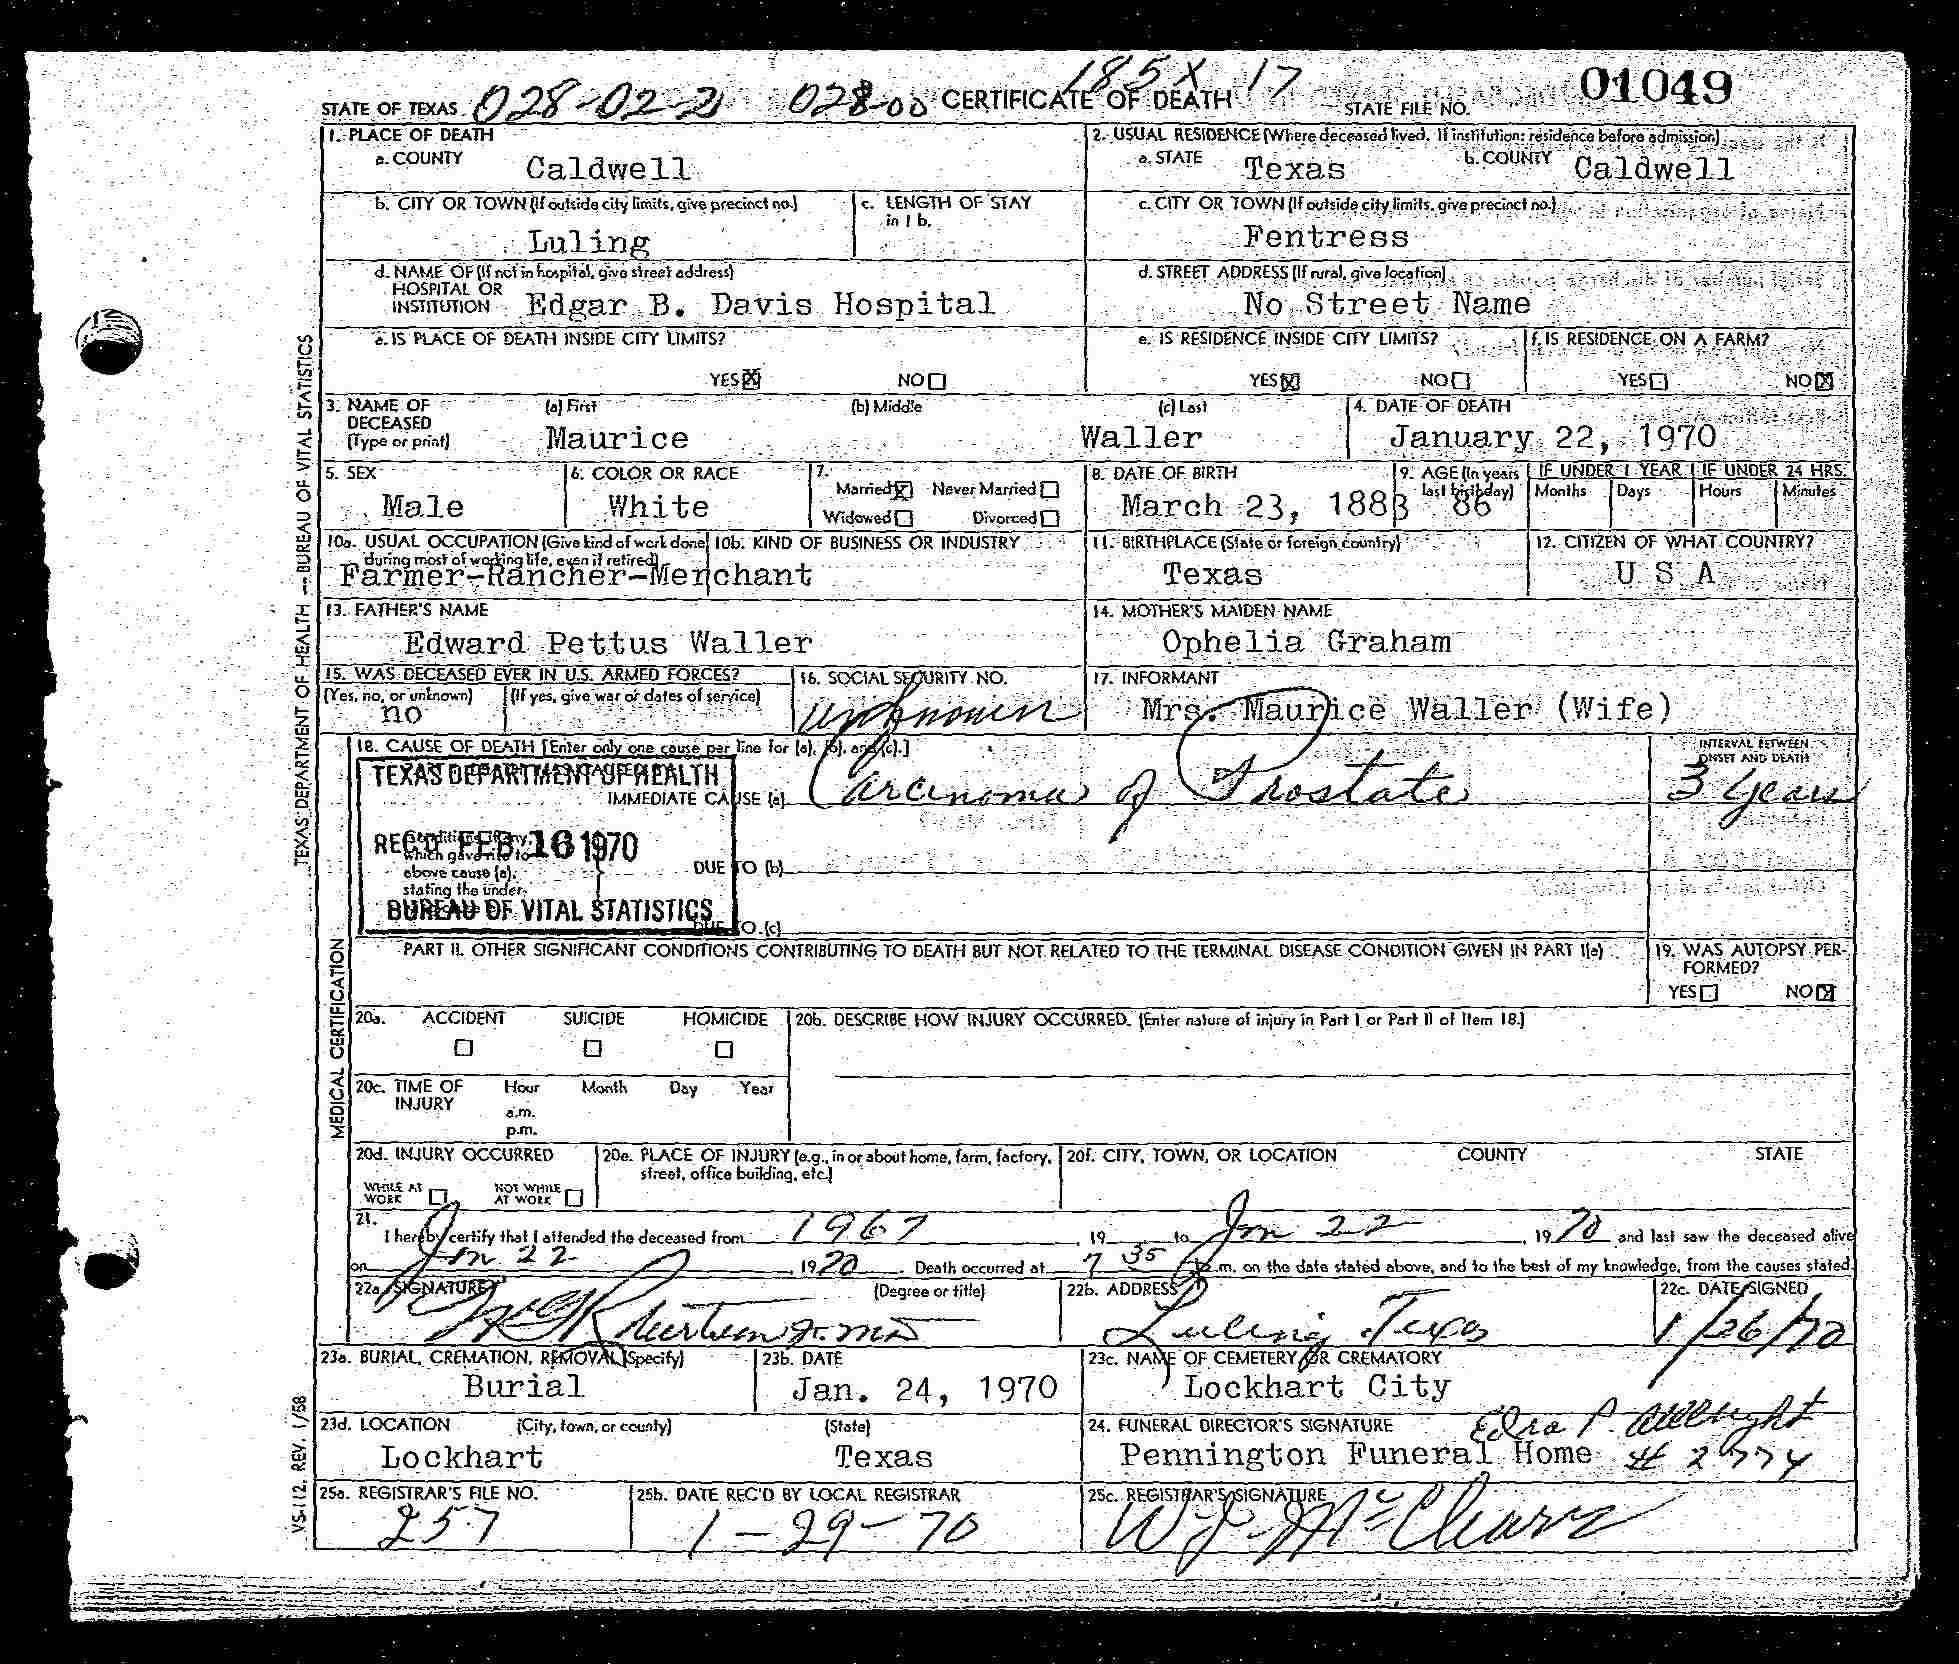 185X 17
STATE OF TEXAS 028-02-2 028-00 CERTIFICATE OF DEATH STATE FILE NO. 01049
1. PLACE OF DEATH
a. COUNTY Caldwell
2. USUAL RESIDENCE (Where deceased lived. If institution: residence before admission)
a. STATE Texas b. COUNTY Caldwell
b. CITY OR TOWN (If outside city limits, give precinct no.) Luling
c. LENGTH OF STAY in 1 b.
c. CITY OR TOWN (If outside city limits, give precinct no.) Fentress
d. NAME OF (If not in hospital, give street address) HOSPITAL OR INSTITUTION Edgar B. Davis Hospital
d. STREET ADDRESS (If rural, give location) No Street Name
e. IS PLACE OF DEATH INSIDE CITY LIMITS? YES☒ NO☐
e. IS RESIDENCE INSIDE CITY LIMITS? YES☒ NO☐
f. IS RESIDENCE ON A FARM? YES☐ NO☒
3. NAME OF DECEASED (Type or print) (a) First (b) Middle (c) Last
Maurice Waller
4. DATE OF DEATH January 22, 1970
5. SEX Male
6. COLOR OR RACE White
7. Married☒ Never Married☐ Widowed☐ Divorced☐
8. DATE OF BIRTH March 23, 1883
9. AGE (In years last birthday) 86
IF UNDER 1 YEAR Months Days
IF UNDER 24 HRS. Hours Minutes
10a. USUAL OCCUPATION (Give kind of work done during most of working life, even if retired) 10b. KIND OF BUSINESS OR INDUSTRY
Farmer-Rancher-Merchant
11. BIRTHPLACE (State or foreign country) Texas
12. CITIZEN OF WHAT COUNTRY? U S A
13. FATHER'S NAME Edward Pettus Waller
14. MOTHER'S MAIDEN NAME Ophelia Graham
15. WAS DECEASED EVER IN U.S. ARMED FORCES?
(Yes, no, or unknown) no (If yes, give war or dates of service)
16. SOCIAL SECURITY NO. unknown
17. INFORMANT Mrs. Maurice Waller (Wife)
18. CAUSE OF DEATH [Enter only one cause per line for (a), (b), and (c).]
INTERVAL BETWEEN ONSET AND DEATH
IMMEDIATE CAUSE (a) Carcinoma of Prostate 3 years
TEXAS DEPARTMENT OF HEALTH
REC'D FEB 16 1970
BUREAU OF VITAL STATISTICS
Conditions, if any, which gave rise to above cause (a), stating the under-
DUE TO (b)
DUE TO (c)
PART II. OTHER SIGNIFICANT CONDITIONS CONTRIBUTING TO DEATH BUT NOT RELATED TO THE TERMINAL DISEASE CONDITION GIVEN IN PART I(a)
19. WAS AUTOPSY PERFORMED? YES☐ NO☒
20a. ACCIDENT☐ SUICIDE☐ HOMICIDE☐
20b. DESCRIBE HOW INJURY OCCURRED. (Enter nature of injury in Part I or Part II of Item 18.)
20c. TIME OF INJURY Hour Month Day Year
a.m.
p.m.
20d. INJURY OCCURRED
WHILE AT WORK☐ NOT WHILE AT WORK☐
20e. PLACE OF INJURY (e.g., in or about home, farm, factory, street, office building, etc.)
20f. CITY, TOWN, OR LOCATION COUNTY STATE
21. I hereby certify that I attended the deceased from 1967, 19 to Jan 22, 1970 and last saw the deceased alive
on Jan 22, 1970. Death occurred at 7 35 p.m. on the date stated above, and to the best of my knowledge, from the causes stated.
22a. SIGNATURE (Degree or title) Jr. MD
22b. ADDRESS Luling, Texas
22c. DATE SIGNED 1/26/70
23a. BURIAL, CREMATION, REMOVAL (Specify) Burial
23b. DATE Jan. 24, 1970
23c. NAME OF CEMETERY OR CREMATORY Lockhart City
23d. LOCATION (City, town, or county) (State)
Lockhart Texas
24. FUNERAL DIRECTOR'S SIGNATURE
Pennington Funeral Home # 2774
25a. REGISTRAR'S FILE NO. 257
25b. DATE REC'D BY LOCAL REGISTRAR 1-29-70
25c. REGISTRAR'S SIGNATURE
TEXAS DEPARTMENT OF HEALTH — BUREAU OF VITAL STATISTICS
MEDICAL CERTIFICATION
VS-112, REV. 1/58